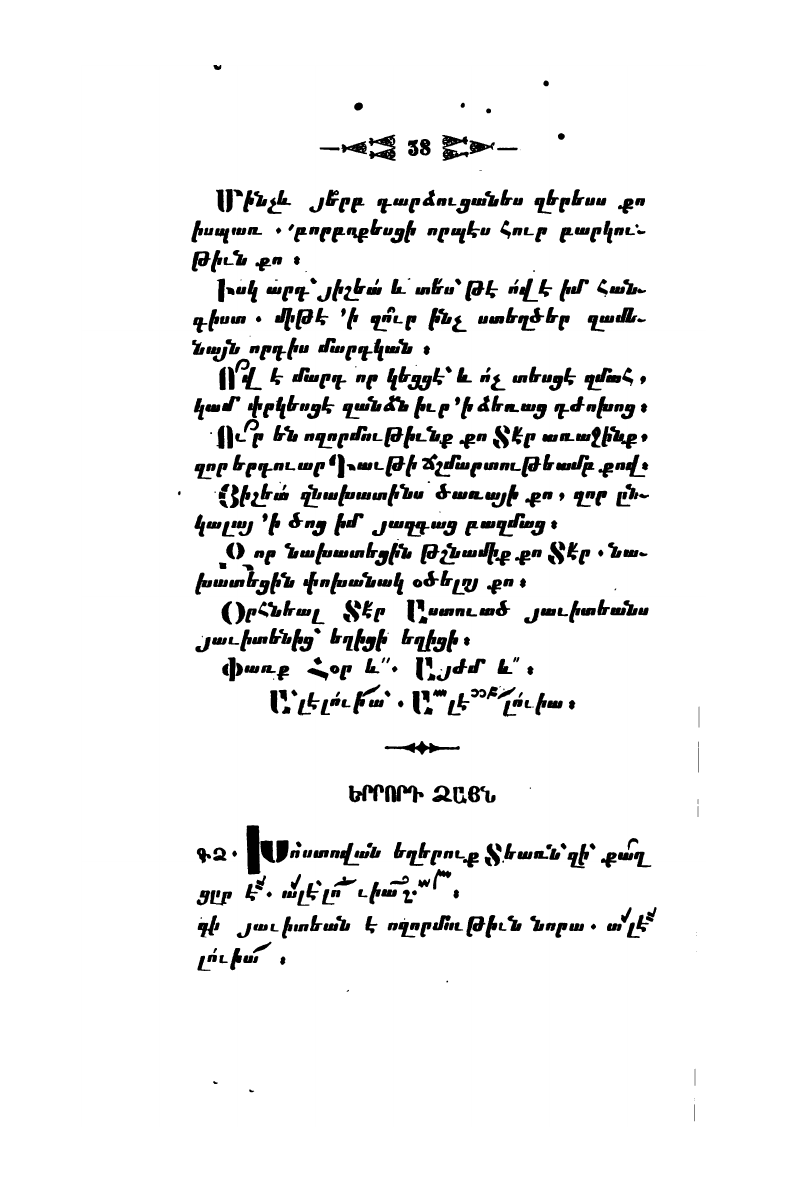 38
Մինչև յե՞րբ դարձուցանես զերեսս քո
իսպառ . ՚բորբոքեսցի որպէս հուր բարկու֊
թիւն քո ։
Իսկ արդ՝ յիշեա՛ և տես՝ թէ ո՛վ է իմ հան֊
գիստ . միթէ ՚ի զո՞ւր ինչ ստեղծեր զամե֊
նայն որդիս մարդկան ։
Ո՞վ է մարդ որ կեցցէ՝ և ո՛չ տեսցէ զմահ ,
կամ փրկեսցէ զանձն իւր ՚ի ձեռաց դժոխոց ։
Ո՞ւր են ողորմութիւնք քո Տէր առաջինք,
զոր երդուար Դաւթի ճշմարտութեամբ քով։
Յիշեա՛ զնախատինս ծառայի քո , զոր ըն֊
կալայ ՚ի ծոց իմ յազգաց բազմաց ։
Զոր նախատեցին թշնամիք քո Տէր . նա֊
խատեցին փոխանակ օծելոյ քո ։
Օրհնեալ Տէր Աստուած յաւիտեանս
յաւիտենից՝ եղիցի եղիցի ։
Փառք Հօր և՛՛. Այժմ և՛՛ ։
Ա՝լէլուիա՝ . Ալէլուիա ։
ԵՐՐՈՐԴ ՁԱՅՆ
ԳՁ . Խոստովան եղերուք Տեառն՝ զի՝ քաղ
ցըր է . ալէլուիա ։
զի յաւիտեան է ողորմութիւն նորա . ալէ
լուիա ։